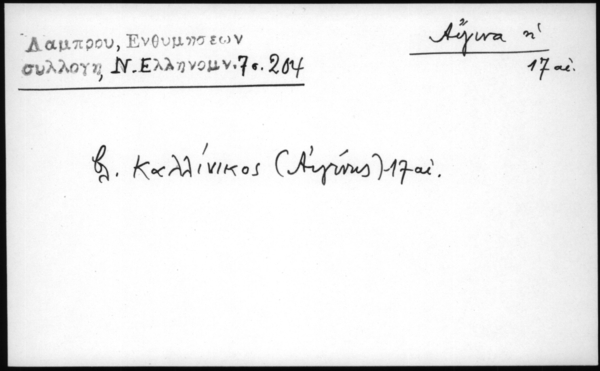 Λαμπρου, Ενθυμησεων
συλλογη, Ν. Ελληνομν. 7 σ. 204
Αἴγινα ἡ
17 αἰ.
βλ. Καλλίνικος (Αἰγίνης) 17 αἰ.